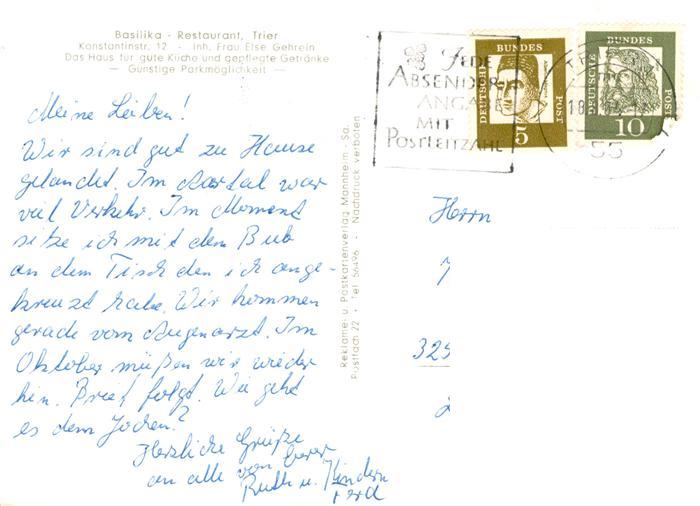 Basilika - Restaurant, Trier
Konstantinstr. 12 - Inh. Frau Else Gehrein
Das Haus für gute Küche und gepflegte Getränke
— Günstige Parkmöglichkeit —
Meine Lieben!
Wir sind gut zu Hause
gelandet. Im Aartal war
viel Verkehr. Im Moment
sitze ich mit dem Bub
an dem Tisch den ich ange-
kreuzt habe. Wir kommen
gerade vom Augenarzt. Im
Oktober müßen wir wieder
hin. Brief folgt. Wie geht
es dem Jochen?
Herzliche Grüße
an alle von Eurer
Ruth u. Kindern
Reklame- u. Postkartenverlag Mannheim - Sa.
Postfach 22 • Tel 56496 - Nachdruck verboten
JEDE
ABSENDER-
ANGABE
MIT
POSTLEITZAHL
DEUTSCHE
BUNDES
POST
5
DEUTSCHE
BUNDES
POST
10
55
Herrn
325